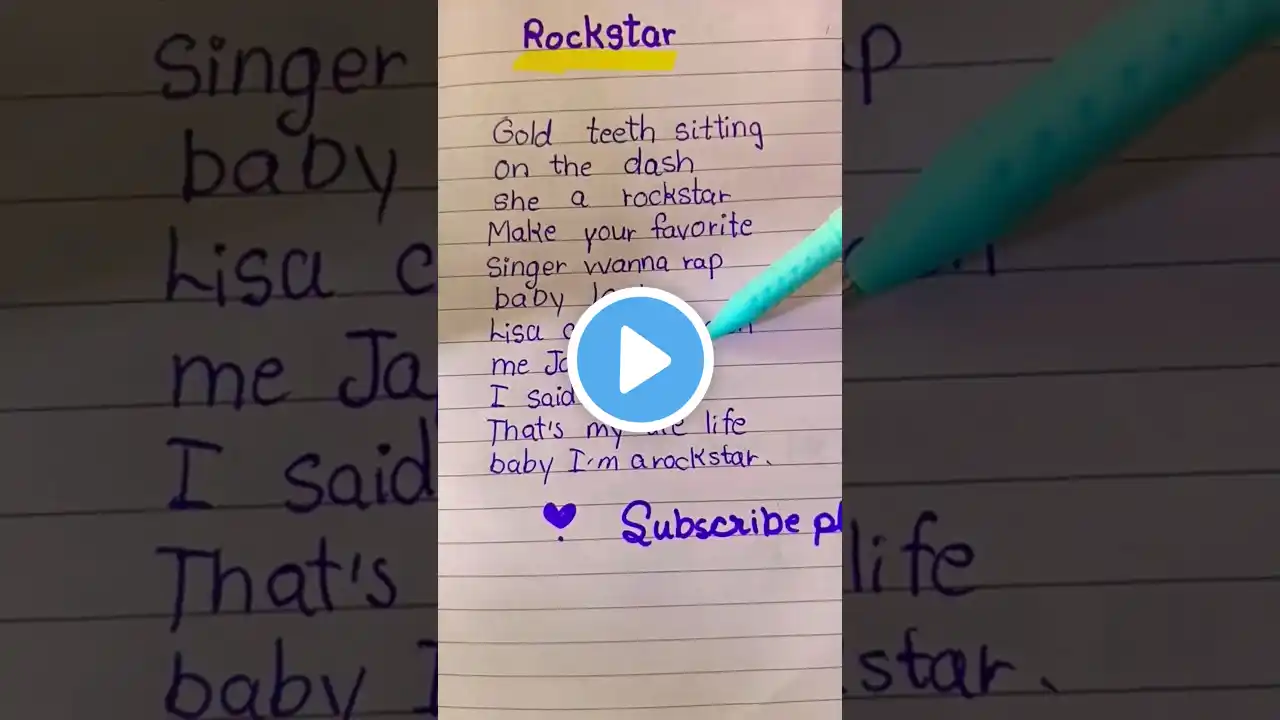 Rockstar
Gold teeth sitting
on the dash
she a rockstar
Make your favorite
Singer wanna rap
baby
Lisa
me
I said
That's my life
baby I'm a rockstar.
Subscribe